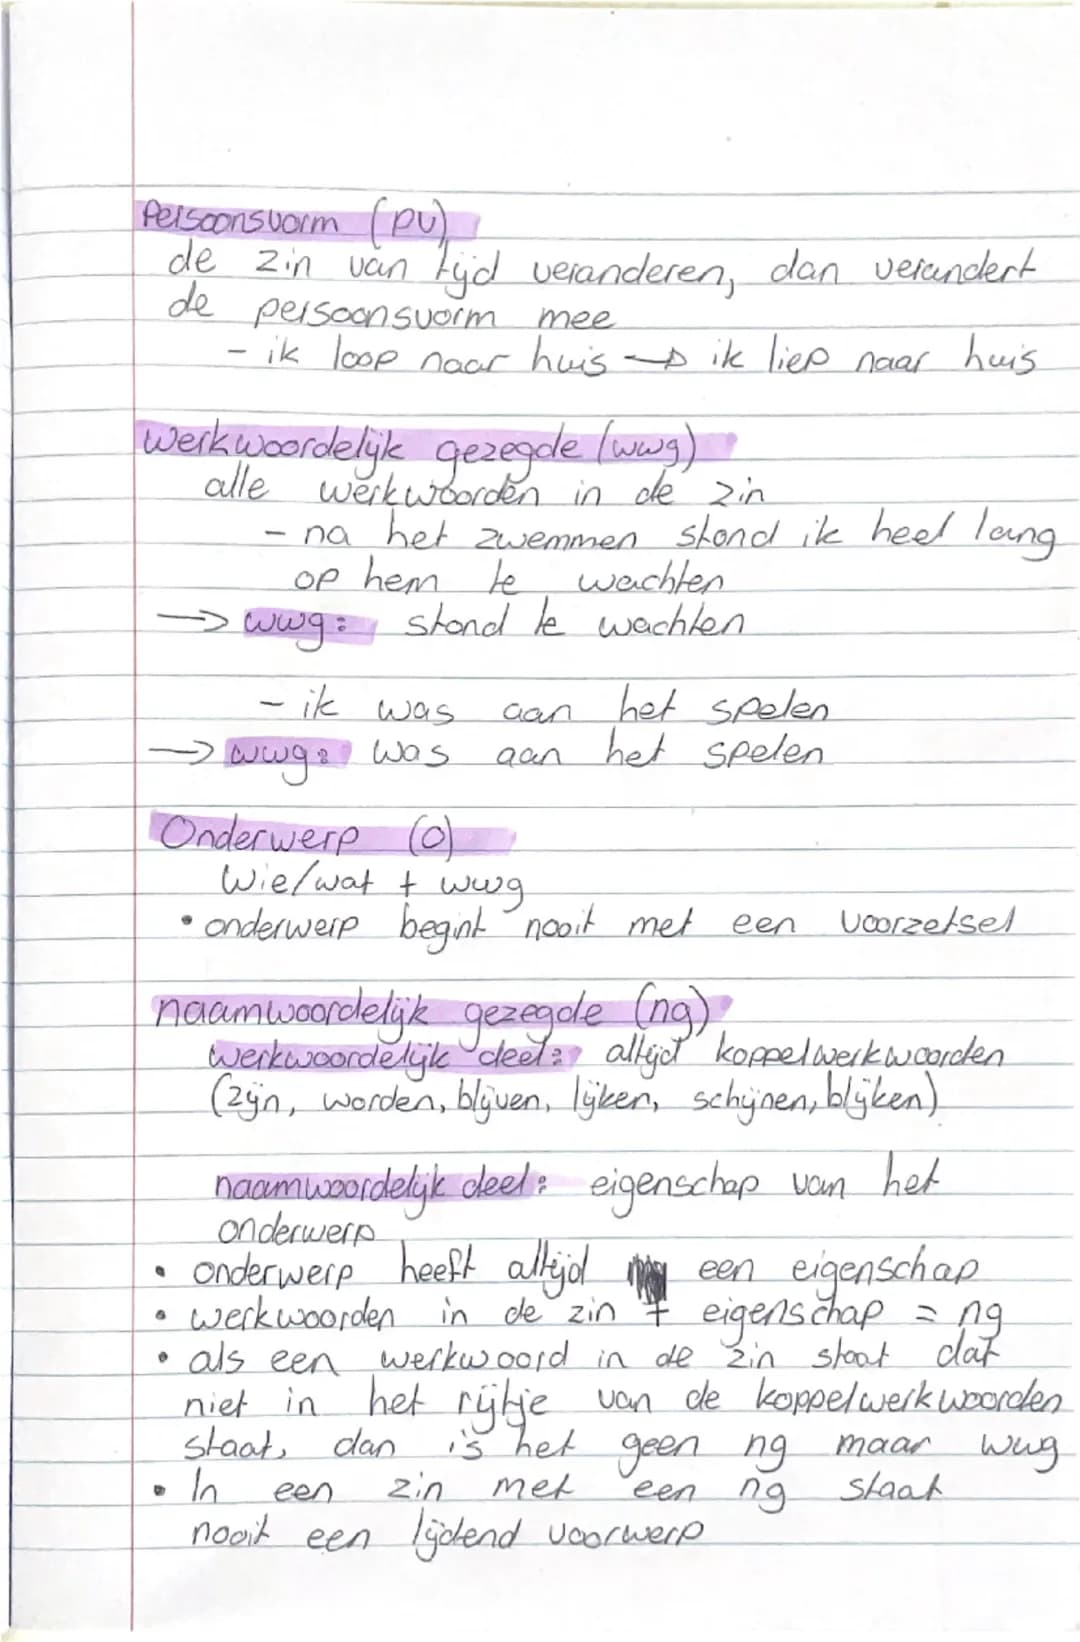 Persoonsvorm (pv)
de zin van tijd veranderen, dan verandert
de persoonsvorm mee
- ik loop naar huis → ik liep naar huis
Werkwoordelijk gezegde (wwg)
alle werkwoorden in de zin
- na het zwemmen stond ik heel lang
op hem te wachten
→ wwg: stond te wachten
- ik was aan het spelen
→ wwg: was aan het spelen
Onderwerp (o)
Wie/wat + wwg
• onderwerp begint nooit met een voorzetsel
naamwoordelijk gezegde (ng)
werkwoordelijk deel: altijd koppelwerkwoorden
(zijn, worden, blijven, lijken, schijnen, blijken)
naamwoordelijk deel: eigenschap van het
onderwerp
• onderwerp heeft altijd een eigenschap
• werkwoorden in de zin + eigenschap = ng
• als een werkwoord in de zin staat dat
niet in het rijtje van de koppelwerkwoorden
staat, dan is het geen ng maar wwg
• In een zin met een ng staat
nooit een lijdend voorwerp